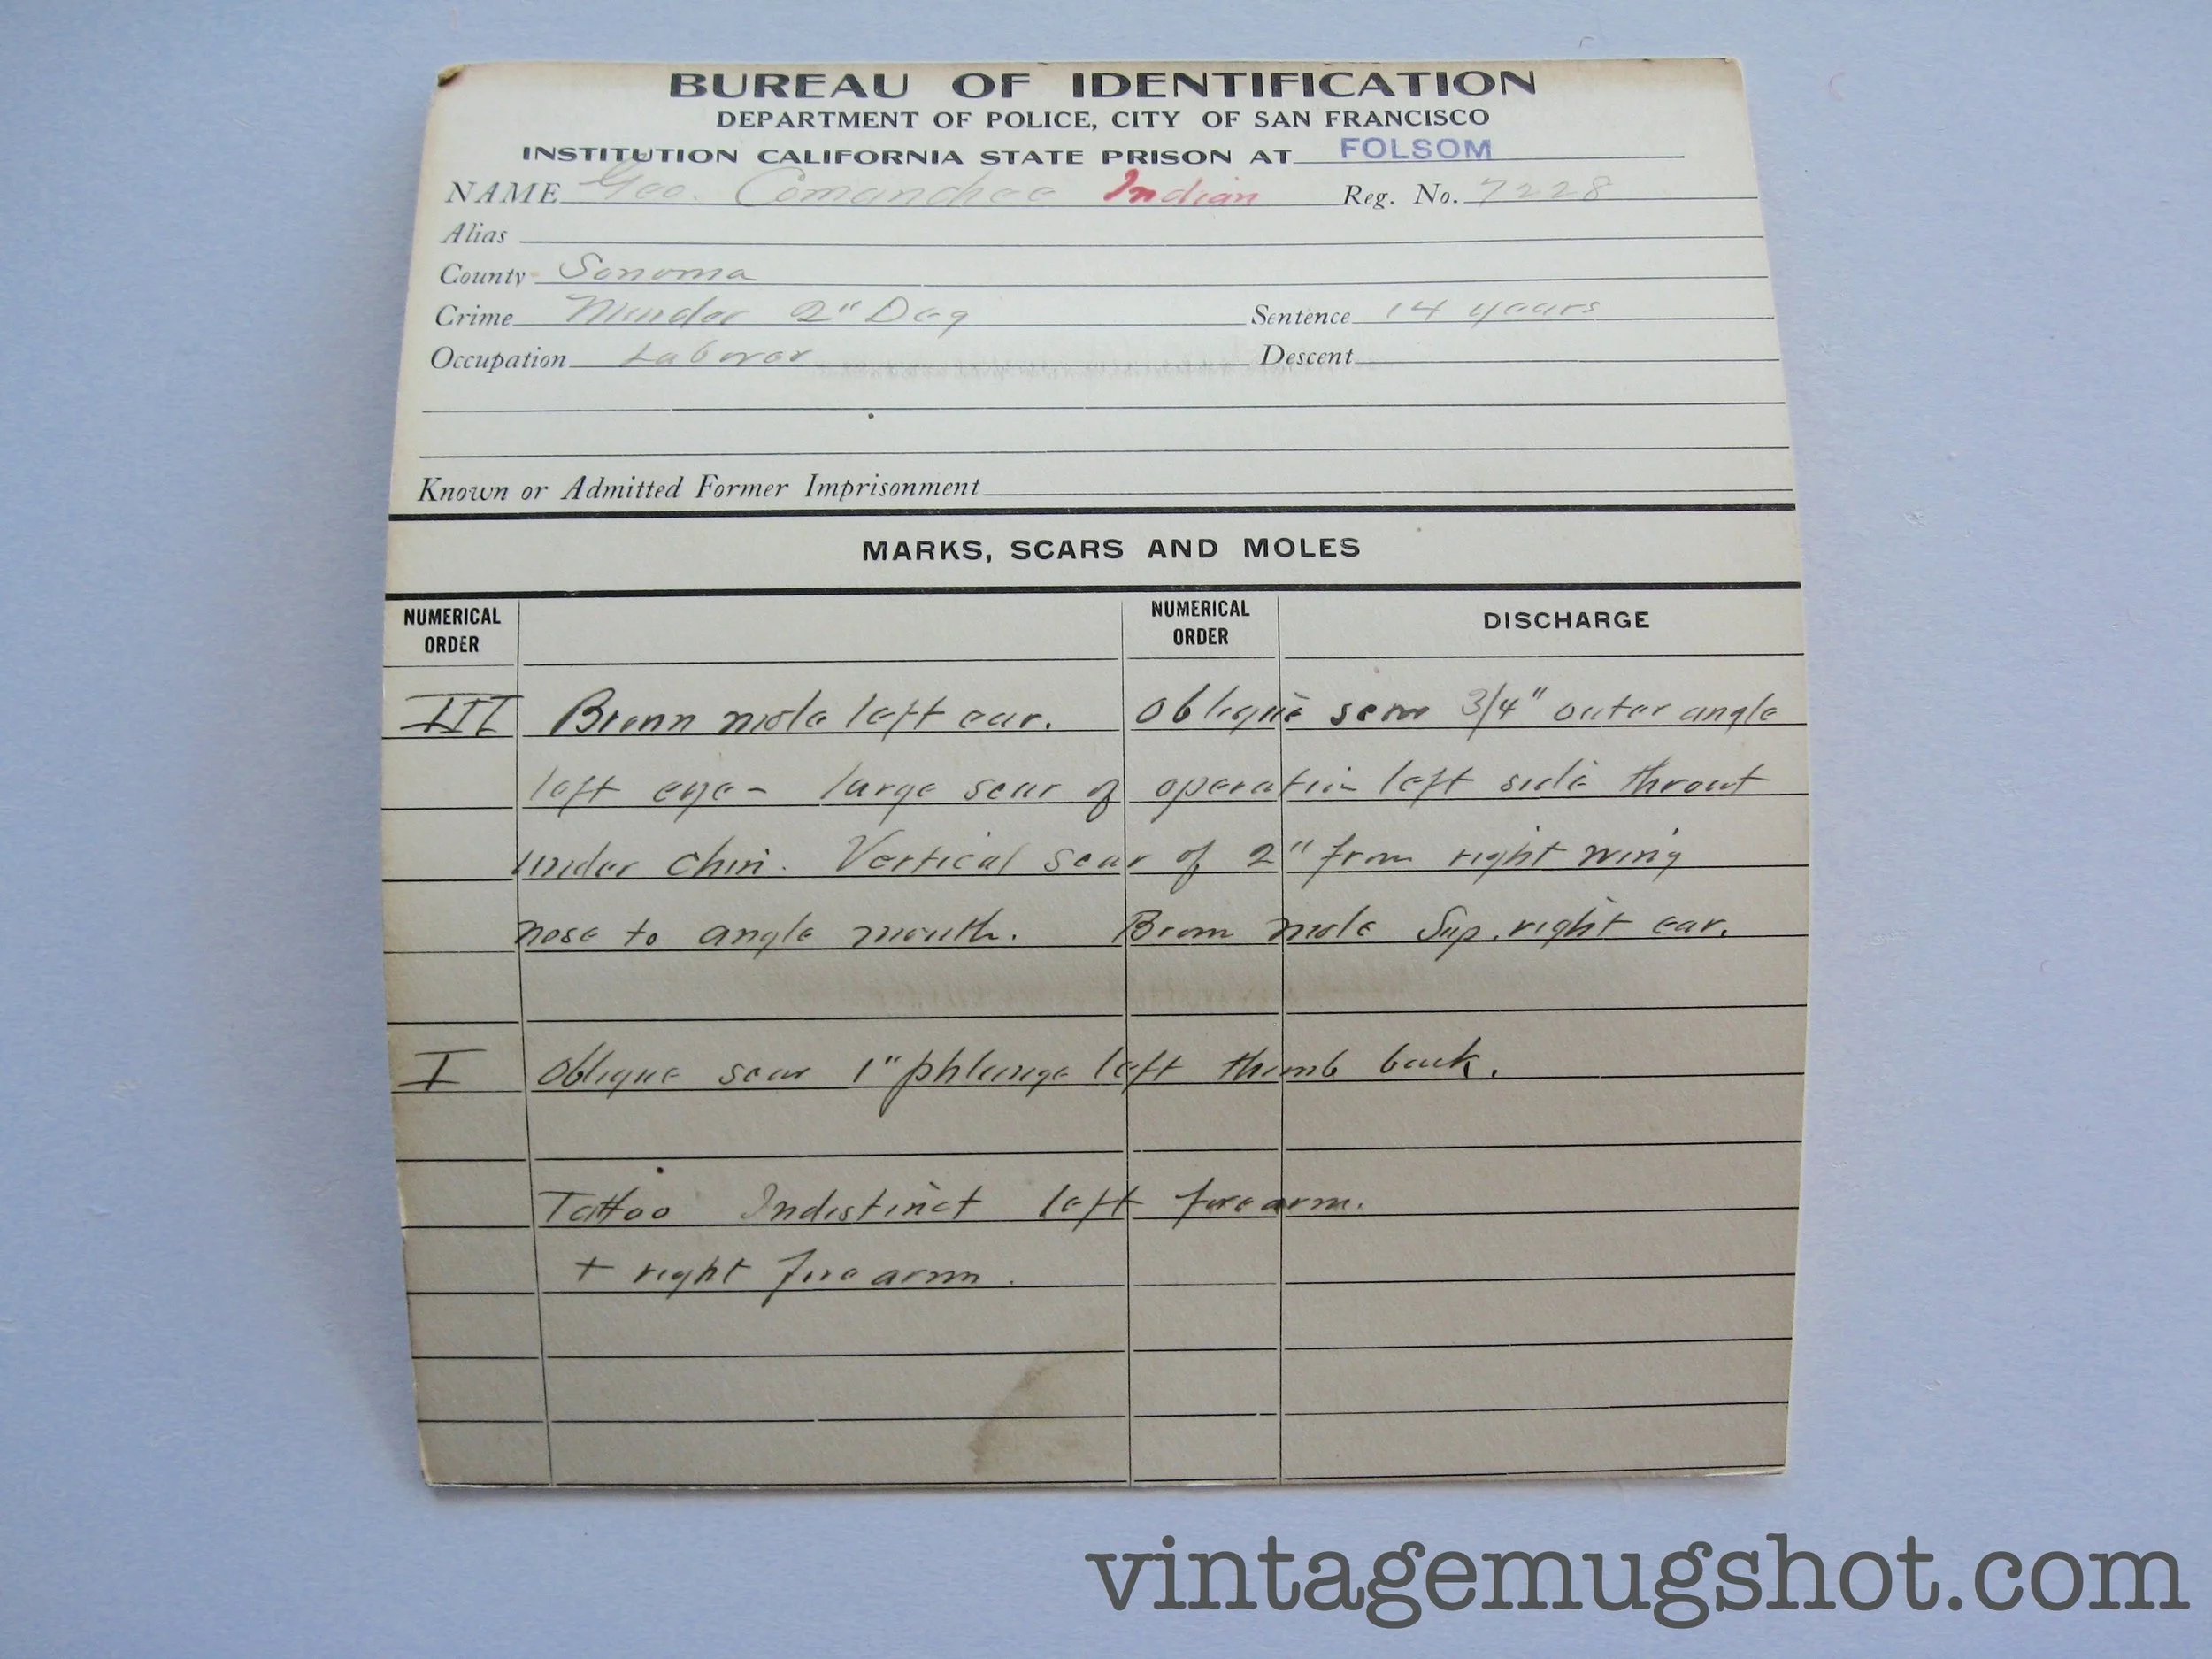 BUREAU OF IDENTIFICATION
DEPARTMENT OF POLICE, CITY OF SAN FRANCISCO
INSTITUTION CALIFORNIA STATE PRISON AT FOLSOM
NAME Geo. Comanchee Indian Reg. No. 7228
Alias
County Sonoma
Crime Murder 2" Deg Sentence 14 years
Occupation Laborer Descent
Known or Admitted Former Imprisonment
MARKS, SCARS AND MOLES
NUMERICAL ORDER NUMERICAL ORDER DISCHARGE
III Brown mole left ear. Oblique scar 3/4" outer angle
left eye - large scar of operation left side throat
under chin. Vertical scar of 2" from right wing
nose to angle mouth. Brown mole Sup. right ear.
I Oblique scar 1" phlange left thumb back.
Tattoo Indistinct left forearm.
+ right forearm.
vintagemugshot.com